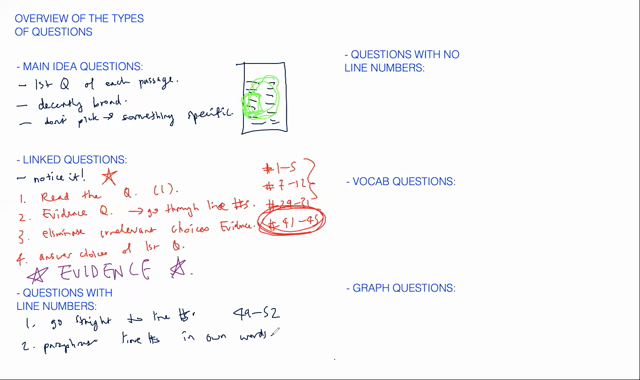 OVERVIEW OF THE TYPES
OF QUESTIONS
- MAIN IDEA QUESTIONS:
- 1st Q of each passage.
- decently broad.
- don't pick → something specific.
- LINKED QUESTIONS:
- notice it! ☆
1. Read the Q. (1).
2. Evidence Q. → go through line #s.
3. eliminate irrelevant choices Evidence.
4. answer choices of 1st Q.
☆ EVIDENCE ☆.
# 1-5
# 7-12
# 41-45
- QUESTIONS WITH
LINE NUMBERS:
1. go straight to line #s. 49-52
2. paraphrase line #s in own words
- QUESTIONS WITH NO
LINE NUMBERS:
- VOCAB QUESTIONS:
- GRAPH QUESTIONS: